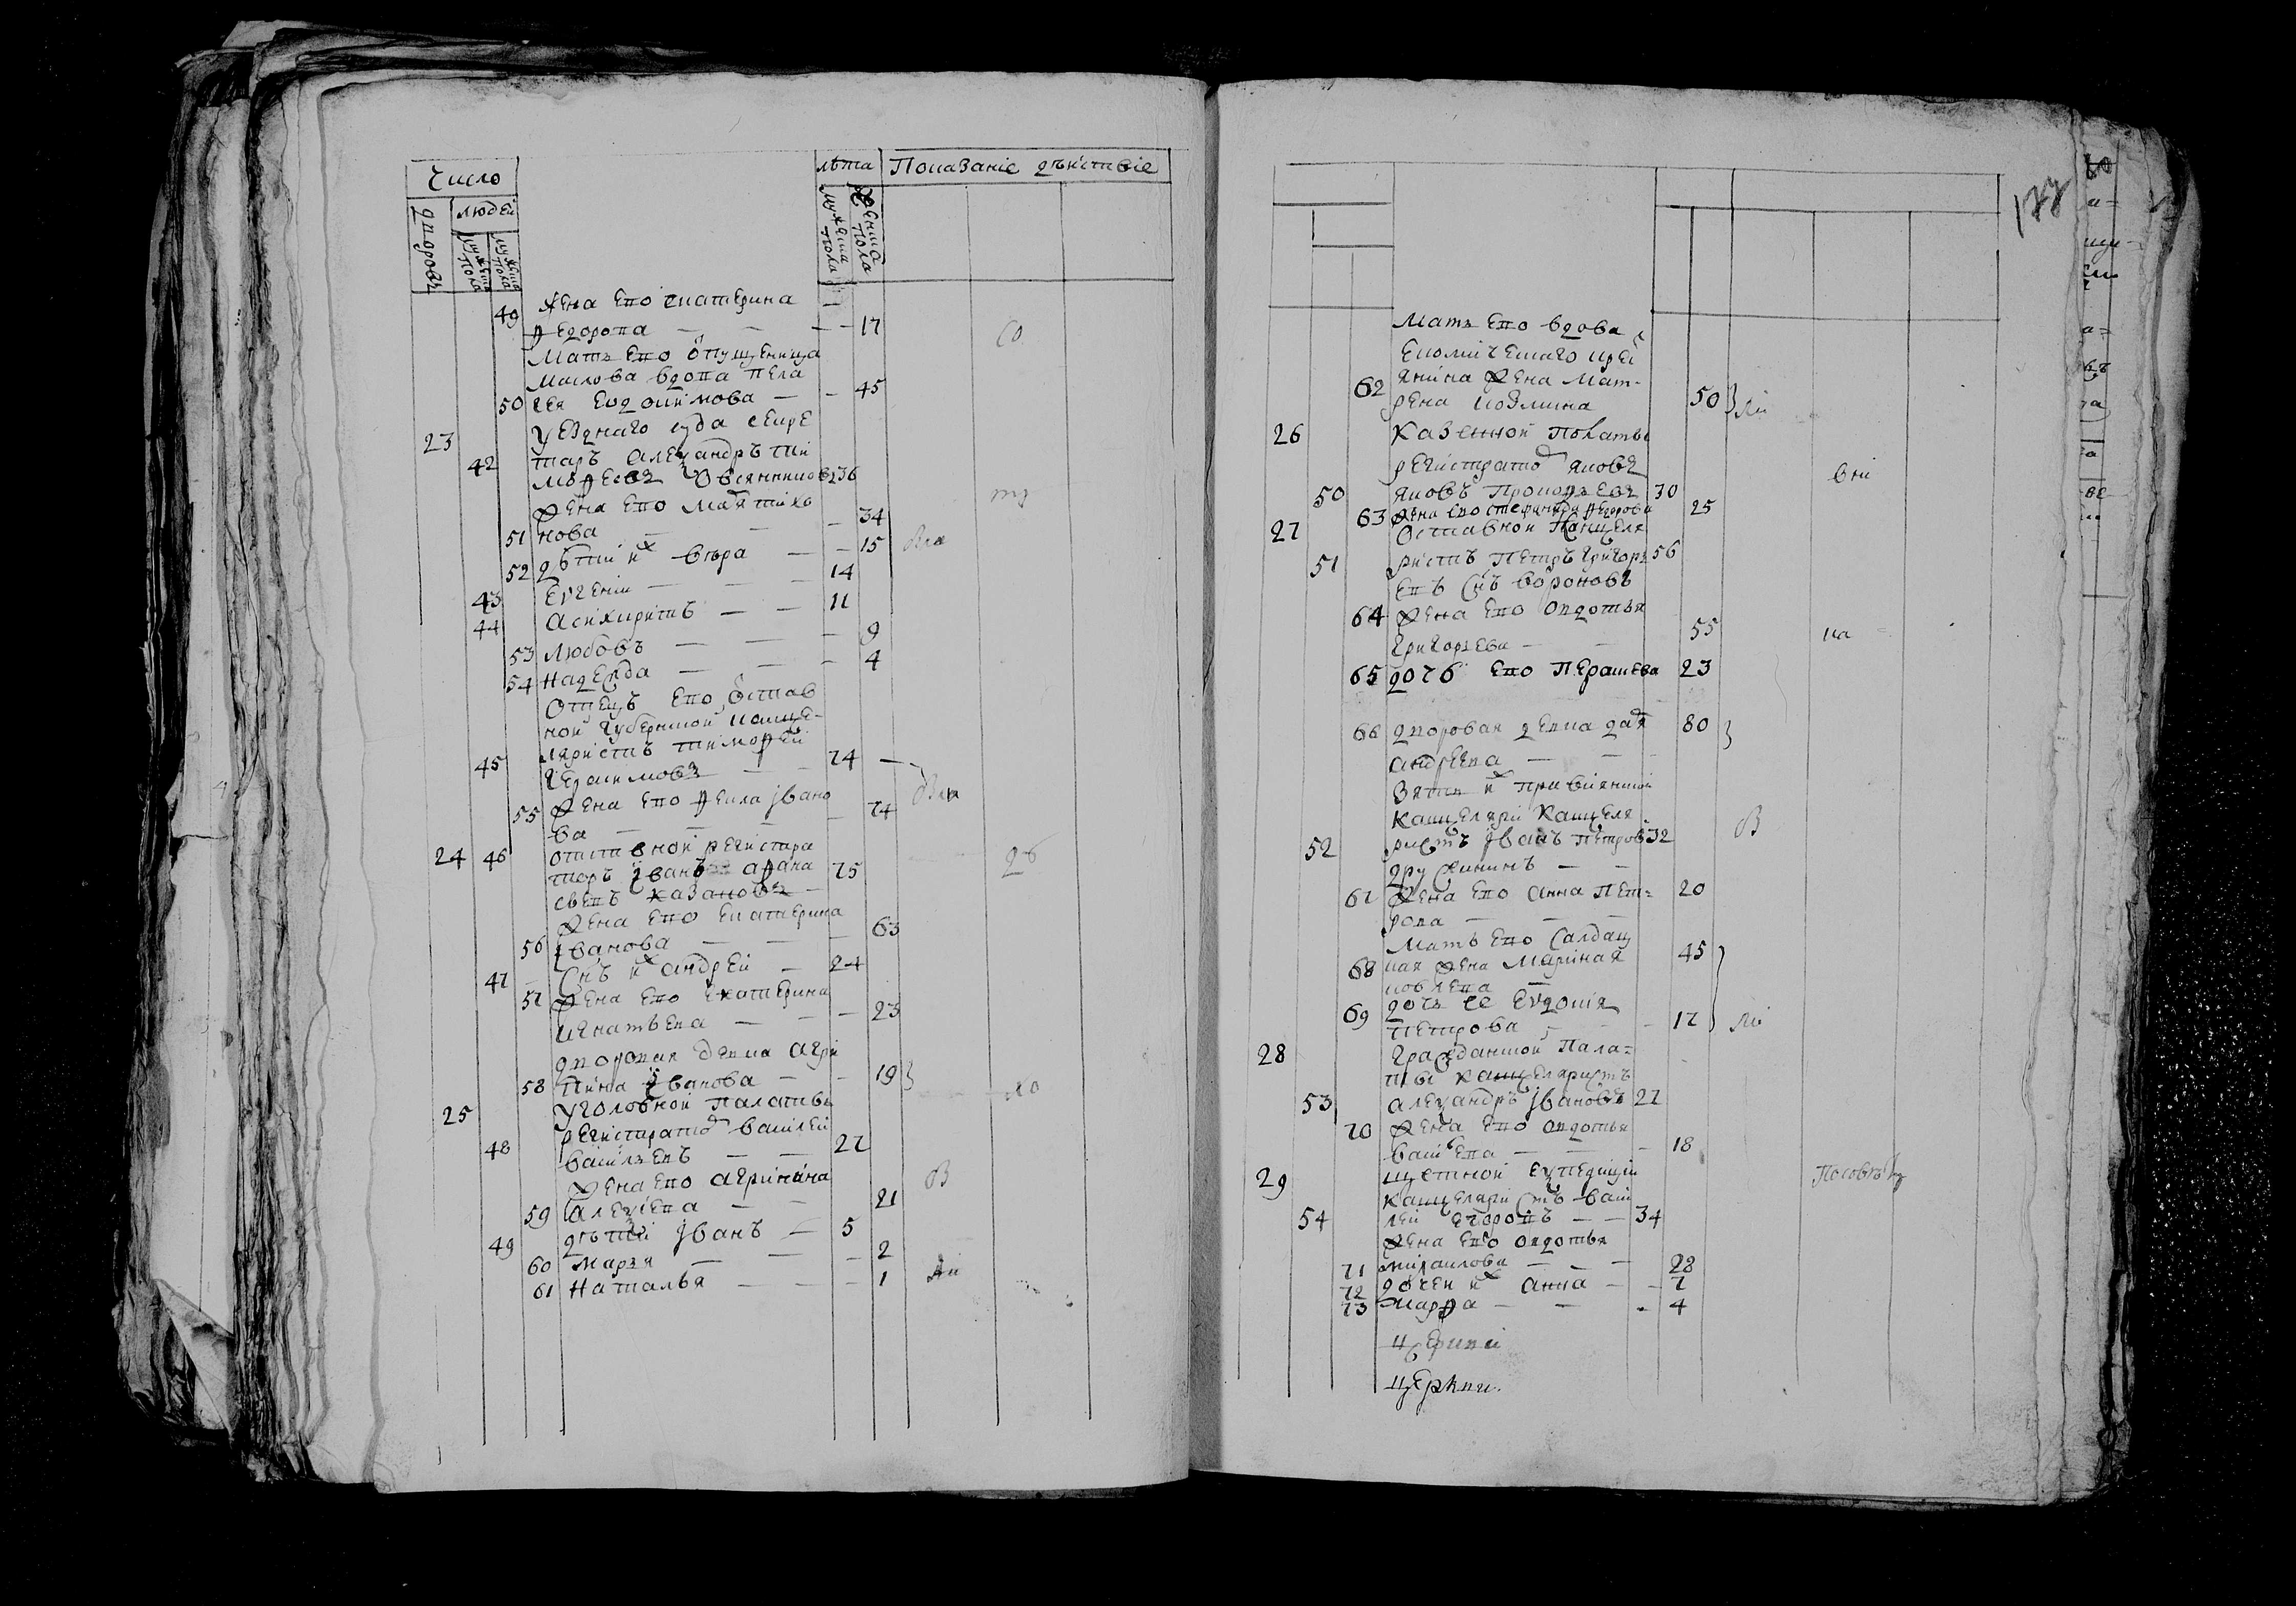 Число
лѣта
Показаніе дѣиствіе
дворовъ
людей
мужеска пола
женска пола
мужеска пола
женска пола
49 Жена Ево Екатерина
Федорова — — — 17
Мать Ево отпущеница
Маслова вдова Пела
50 гея Евдокимова — — 45
23 Уезднаго суда секре
42 тарь Александръ Ти
мофеевъ Овсянниковъ 36
Жена Ево
нова — — 34
51
52 дѣти их Вѣра — — 15
43 Евгений — — — 14
44 Асинкритъ — — 11
53 Любовь — — — 9
54 Надежда — — — 4
Отецъ Ево остав
ной Губернской канце-
45 ляристъ Тимофей
Герасимовъ — — 74
55 Жена Ево Фекла Ивано
ва — — — 74
24 46 отставной регистра
торъ Иванъ Афана
сьевъ Казановъ — 75
Жена Ево Екатерина
56 Иванова — — — 63
47 Снъ их Андрей — 24
57 Жена Ево Екатерина
Игнатьева — — — 23
дворовая девка Агри
58 пина Иванова — — 19
25 Уголовной Палаты
регистрато Василей
48 Васильевъ — — 27
Жена Ево Агрипина
59 Алексеева — — 21
49 дѣти Иванъ — 5
60 Марья — — — 2
61 Наталья — — — 1
177
Мать Ево вдова
Економическаго кре
62 янина Жена Мат-
рена Козмина 50
26 Казенной Полаты
регистрато Яковъ
50 Яковъ Прокофьевъ 30
63 Жена Ево Екатерина Федорова 25
27 Оставной Канцеля
51 ристъ Петръ Григорь 56
евъ Снъ Вороновъ
64 Жена Ево Овдотья
Григорьева — — 55
65 дочь Ево Перасковья 23
66 дворовая девка Дарья 80
Андреева — — —
Зять их Правиянской
Канцелярии Канцеля
52 ристъ Иванъ Петровъ 32
Дружининъ — —
67 Жена Ево Анна Пет- 20
рова — — —
Мать Ево Салдац
68 кая Жена Марина Я 45
ковлева —
69 дочь ее Евдокия
Петрова — — — 17
28 Гражданской Пала-
ты Канцеляристъ
53 Александръ Ивановъ 27
70 Жена Ево Овдотья
Васильева — — — 18
29 щетной Експедиции
Канцеляристъ Васи
54 лей Егоровъ — — 34
Жена Ево Овдотья
71 Михайлова — — — 28
72 дочери их Анна — — 7
73 Марфа — — — 4
церкви
церкви.